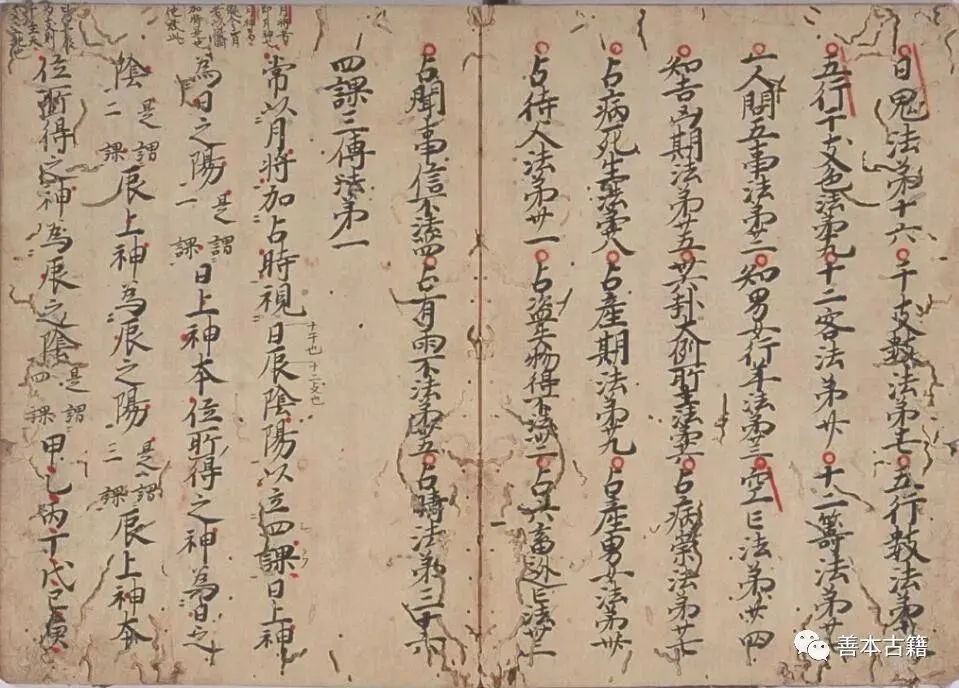 日鬼法第十六 干支數法第十七 五行數法第十八
五行干支色法第十九 十二客法第廿 十二籌法第廿一
一人問五事法第廿二 知男女行年法第廿三 空亡法第廿四
知吉凶期法第廿五 卅六卦大例所主法第廿六 占病祟法第廿七
占病死生法第廿八 占產期法第廿九 占產男女法第卅
占待人法第卅一 占盜失物得不法卅二 占六畜逃亡法卅三
占聞事信不法卅四 占有雨不法第卅五 占晴法第三十六
四課三傳法第一
常以月將加占時視日辰陰陽以立四課日上神
十干也 十二支也
為日之陽 是謂一課 日上神本位所得之神為日之
陰 是謂二課 辰上神為辰之陽 是謂三課 辰上神本
位所得之神為辰之陰 是謂四課 甲乙丙丁戊己庚
善本古籍